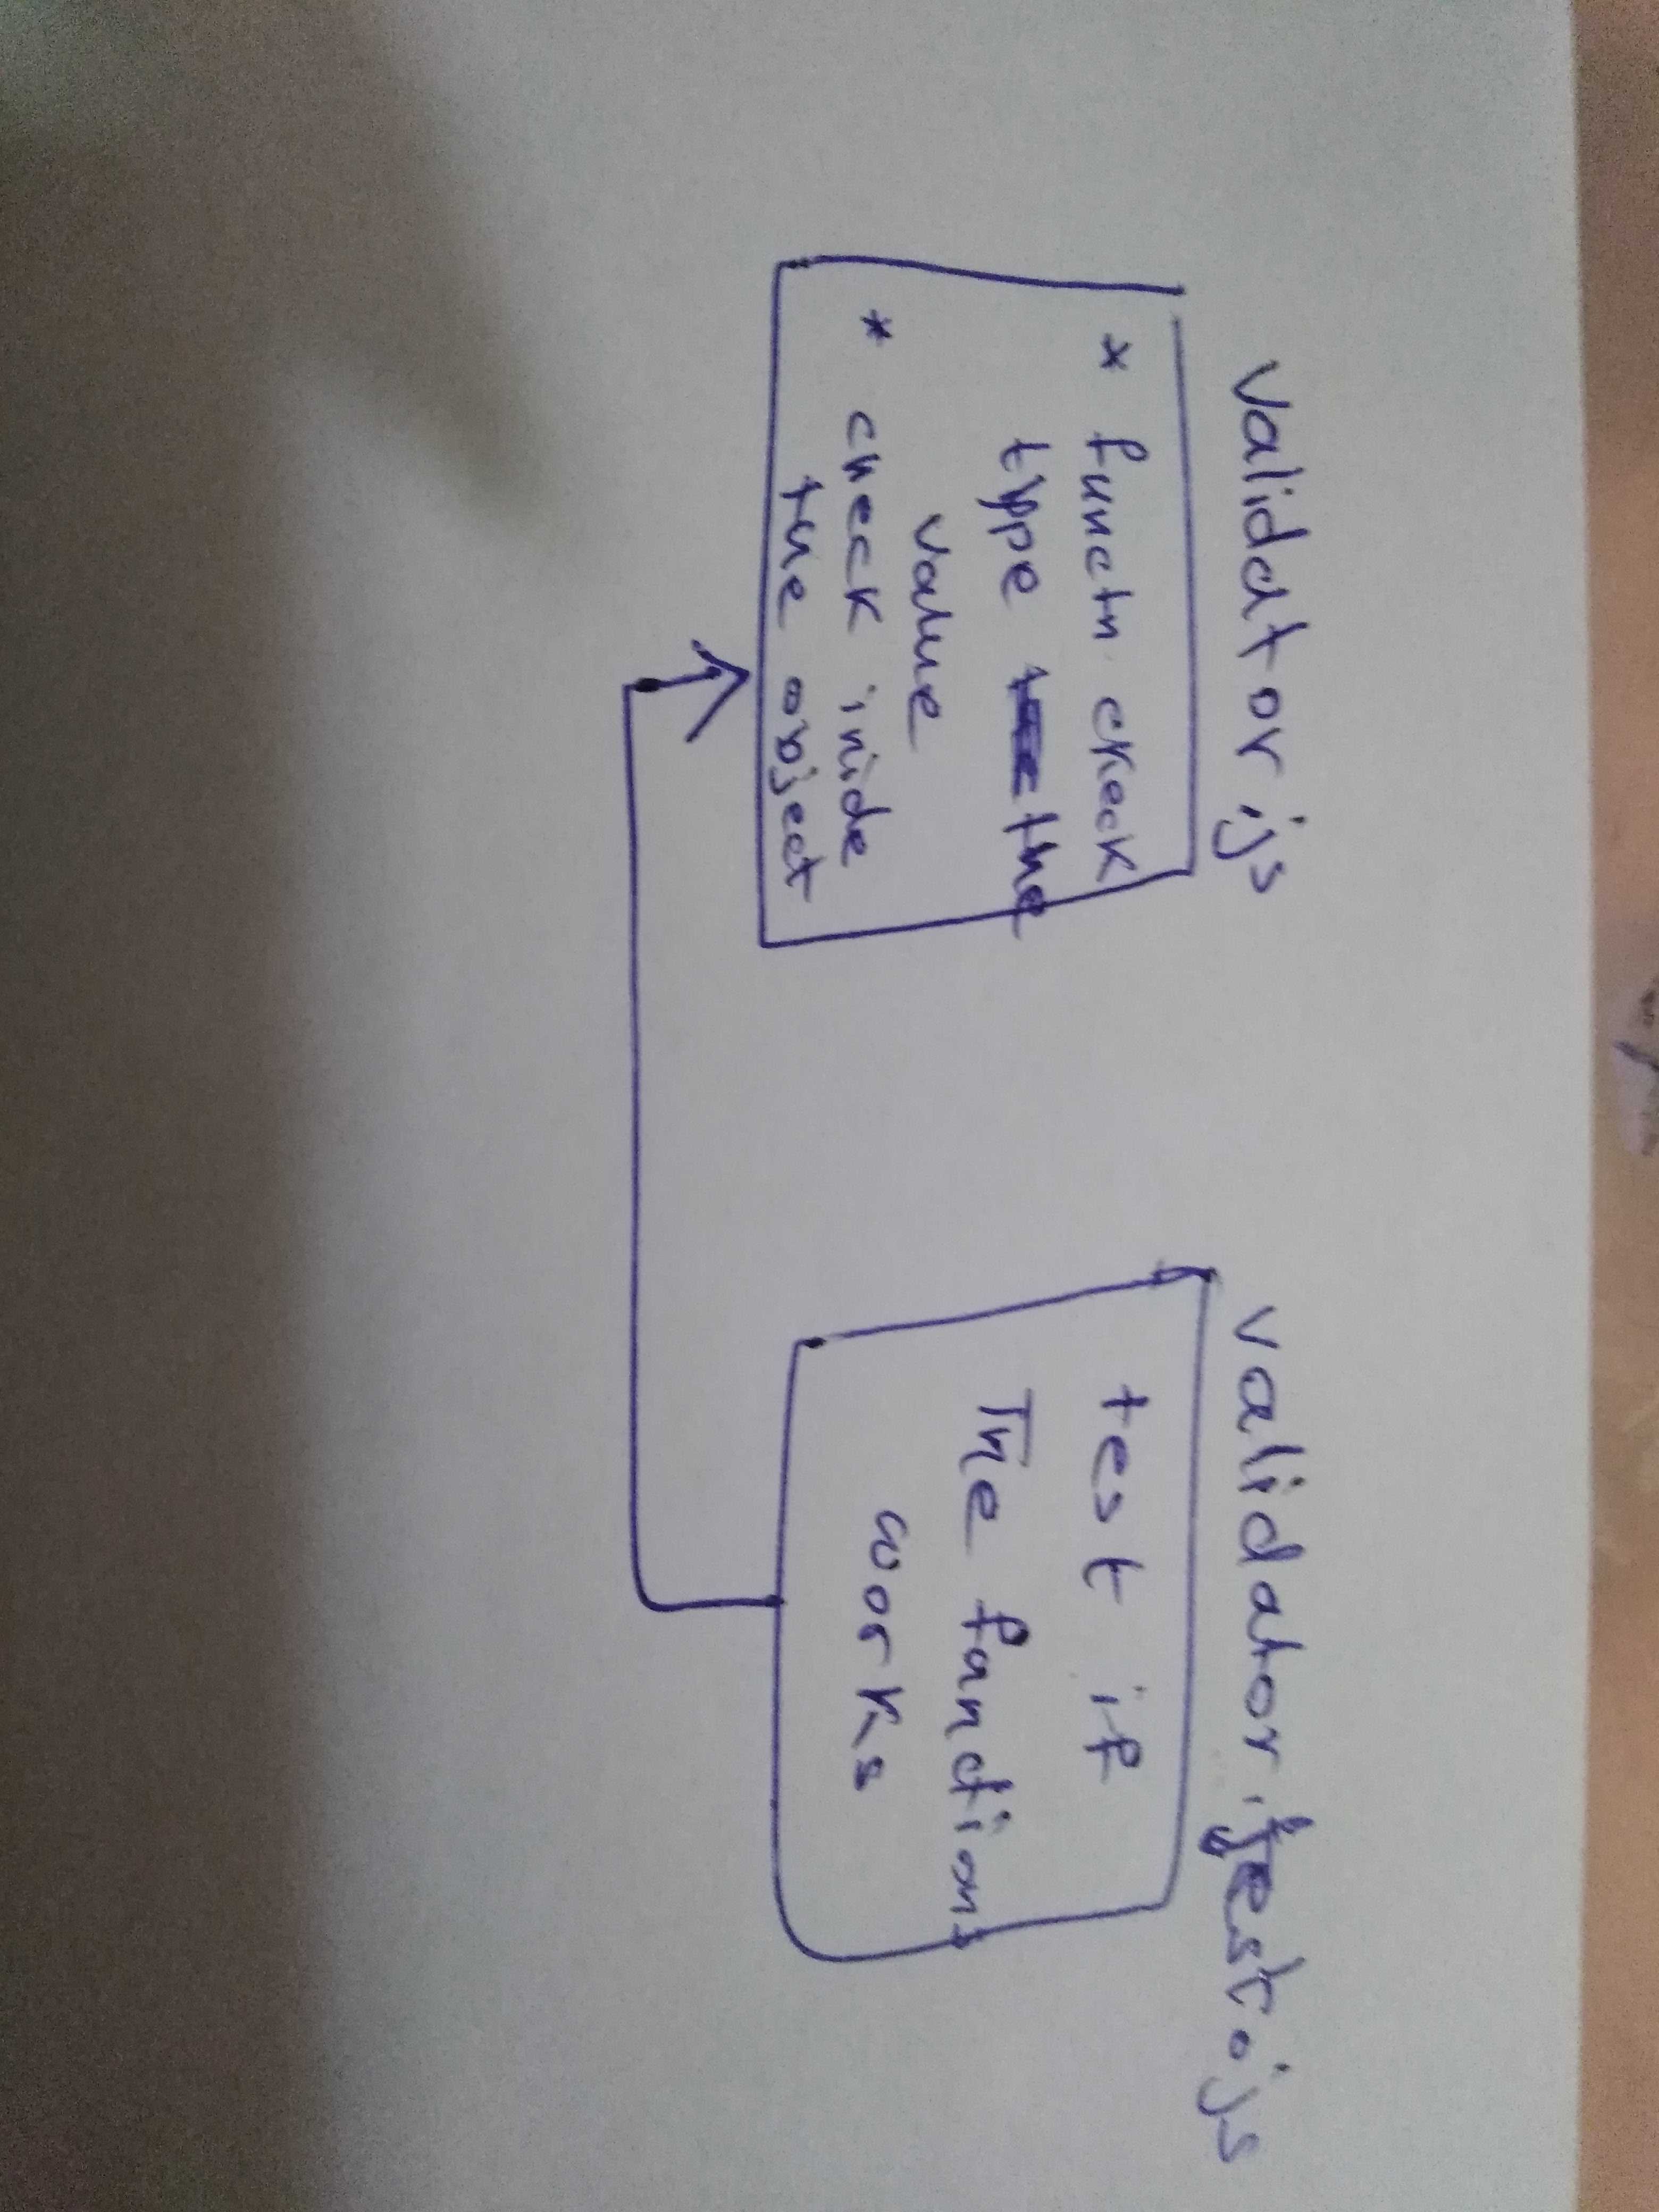 validator.js
* functn check
type the
value
* check inide
the object
validator.test.js
test if
The functions
works